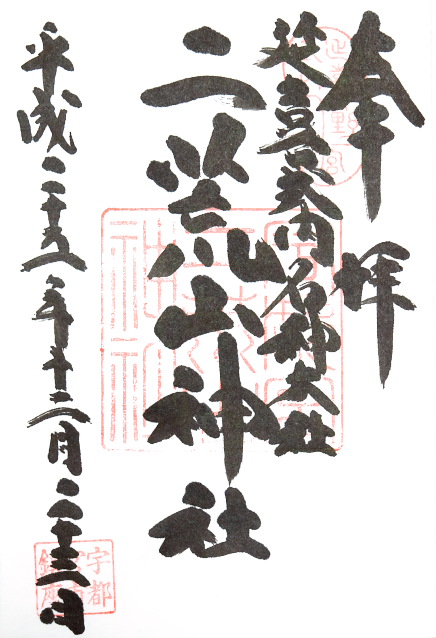 奉拝
延喜式内名神大社
二荒山神社
平成二十五年十二月二十三日
宇都
宮市
鎮座